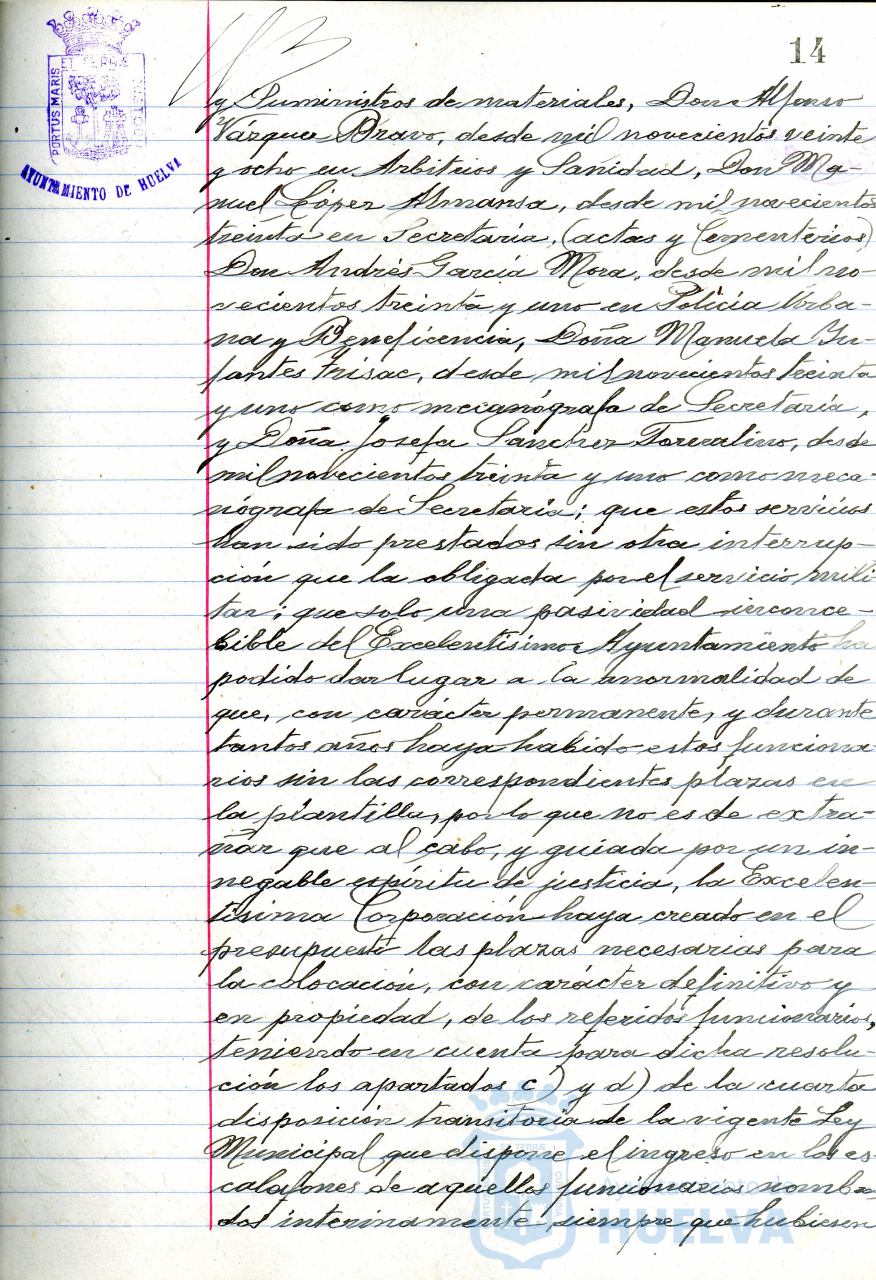 14
PORTUS MARIS ET TERRÆ CUSTODIA
AYUNTAMIENTO DE HUELVA
y Suministros de materiales, Don Alfonso
Vázquez Bravo, desde mil novecientos veinte
y ocho en Arbitrios y Sanidad, Don Ma-
nuel López Almansa, desde mil novecientos
treinta en Secretaría, (actas y Cementerios)
Don Andrés García Mora, desde mil no-
vecientos treinta y uno en Policía Urba-
na y Beneficencia, Doña Manuela In-
fantes Frisac, desde mil novecientos treinta
y uno como mecanógrafa de Secretaría,
y Doña Josefa Sánchez desde
mil novecientos treinta y uno como meca-
nógrafa de Secretaría; que estos servicios
han sido prestados sin otra interrup-
ción que la obligada por el servicio mili-
tar; que solo una pasividad inconce-
bible del Excelentísimo Ayuntamiento ha
podido dar lugar a la anormalidad de
que, con carácter permanente, y durante
tantos años haya habido estos funciona
rios sin las correspondientes plazas en
la plantilla, por lo que no es de extra-
ñar que al cabo, y guiada por un in-
negable espíritu de justicia, la Excelen-
tísima Corporación haya creado en el
presupuesto las plazas necesarias para
la colocación, con carácter definitivo y
en propiedad, de los referidos funcionarios,
teniendo en cuenta para dicha resolu-
ción los apartados c) y d) de la cuarta
disposición transitoria de la vigente Ley
Municipal que dispone el ingreso en los es-
calafones de aquellos funcionarios nombra-
dos interinamente, siempre que hubiesen
Ayuntamiento de
HUELVA